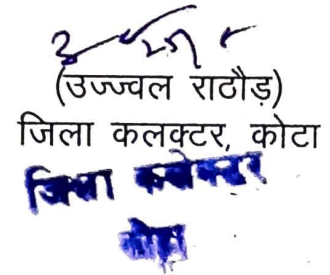 (उज्ज्वल राठौड़)
जिला कलक्टर, कोटा
जिला कलेक्टर
कोटा